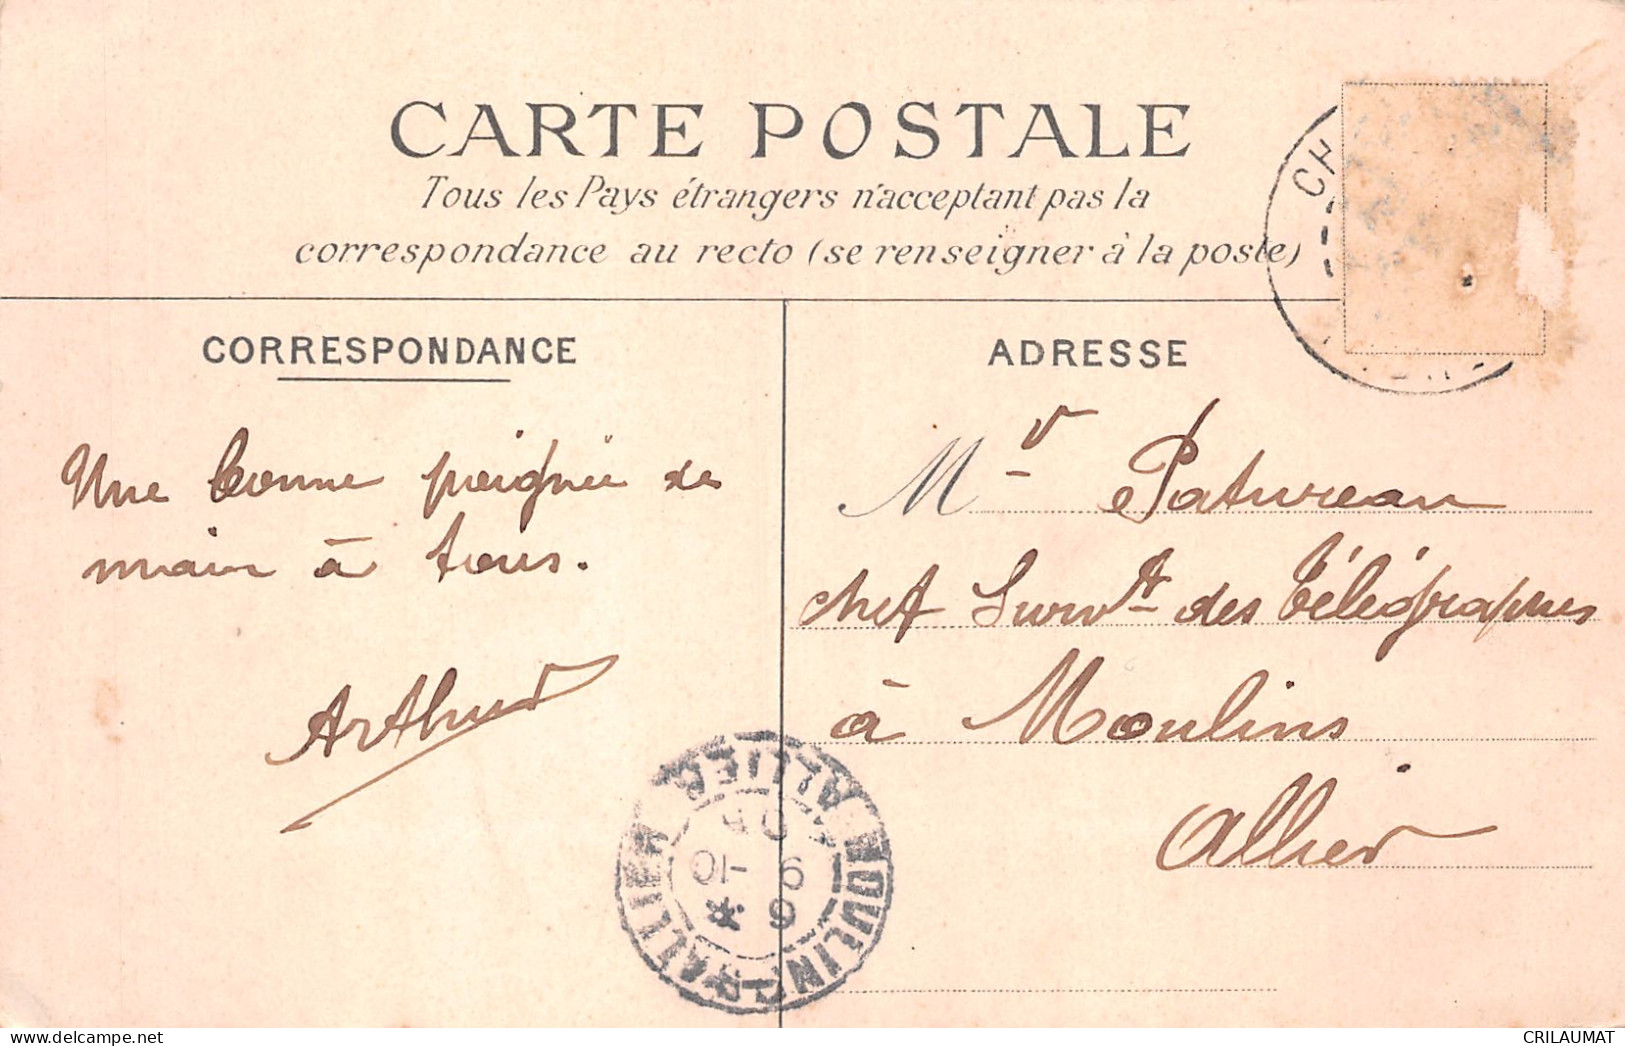 CARTE POSTALE
Tous les Pays étrangers n'acceptent pas la
correspondance au recto (se renseigner à la poste)
CORRESPONDANCE
Une bonne poignée de
main à tous.
Arthur
ADRESSE
Mr Patureau
chef Survt des Télégraphes
à Moulins
Allier
CH
MOULINS ALLIER
CRILAUMAT